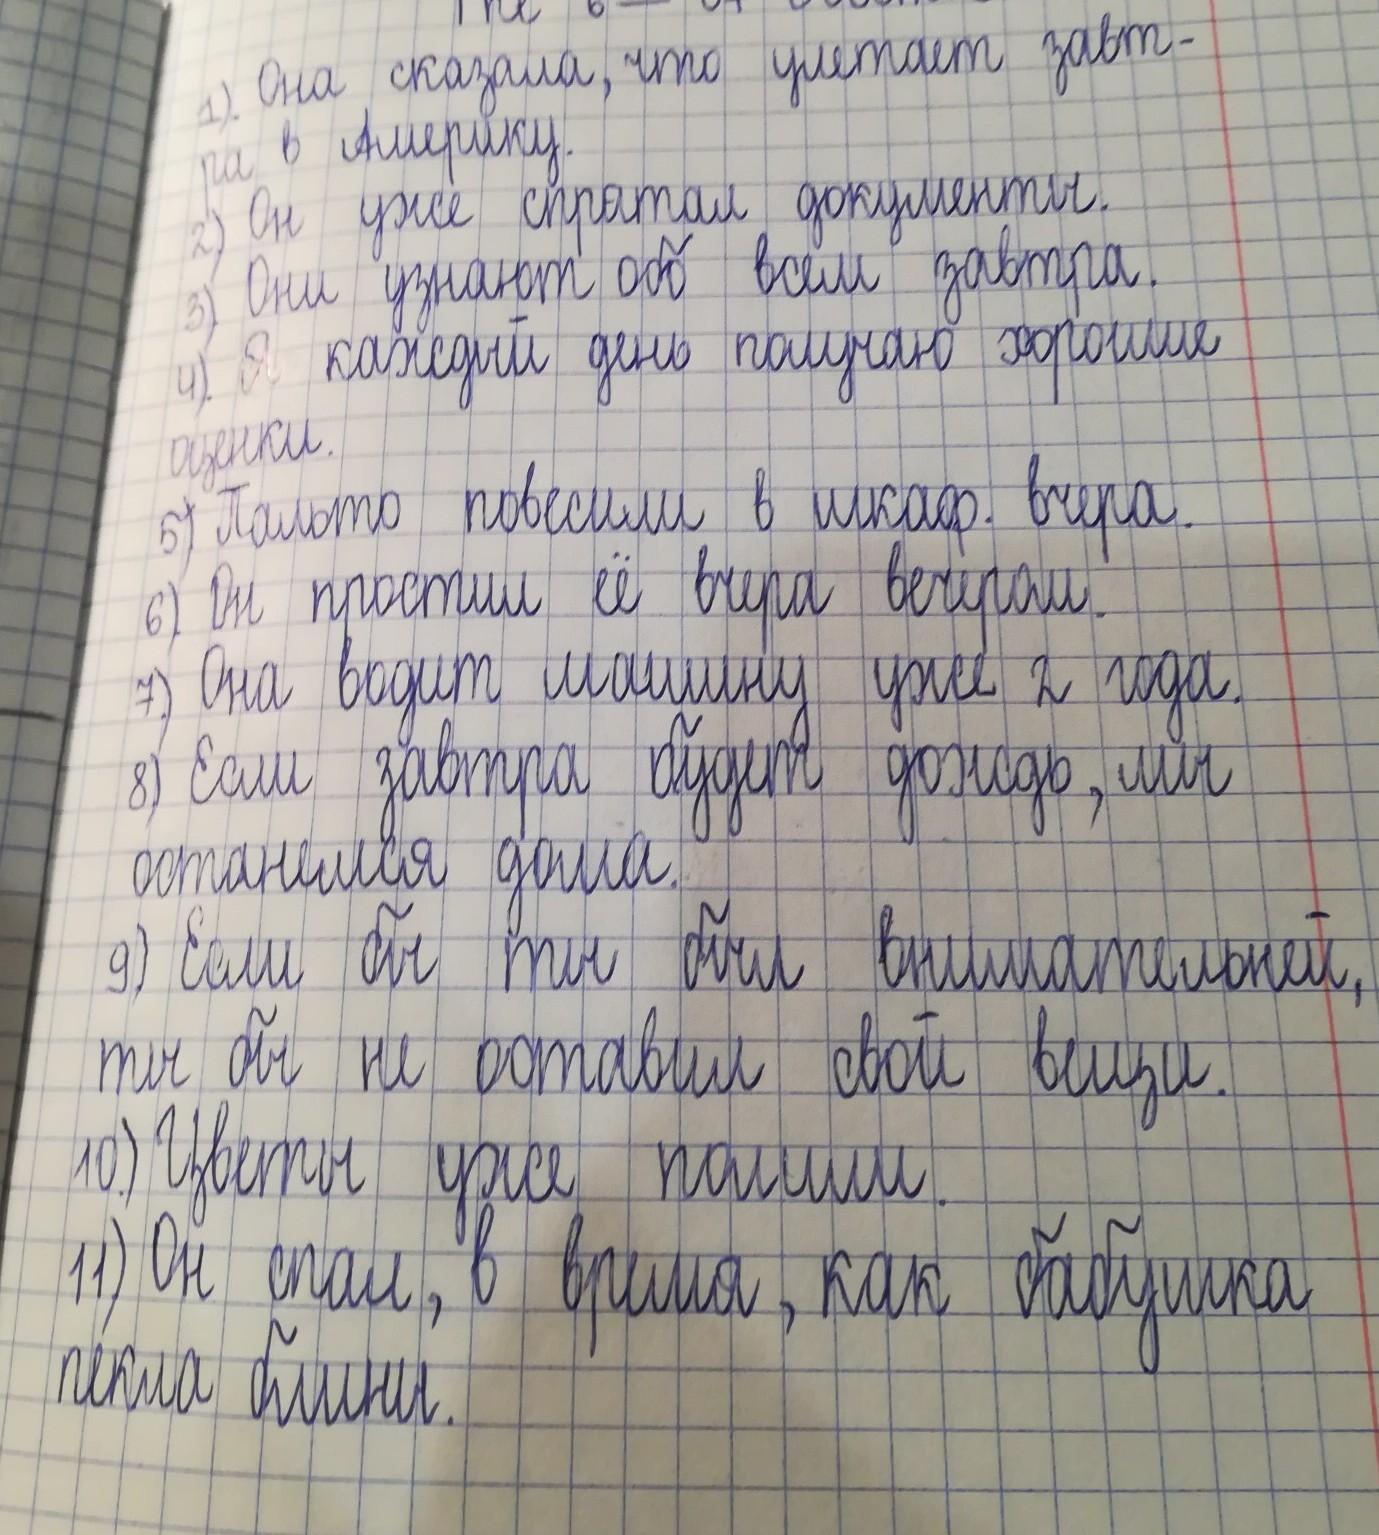 The 6
1). Она сказала, что улетает завт-
ра в Америку.
2) Он уже спрятал документы.
3) Они узнают обо всем завтра.
4). Я каждый день получаю хорошие
оценки.
5) Пальто повесили в шкаф вчера.
6) Он простил её вчера вечером.
7) Она водит машину уже 2 года.
8) Если завтра будет дождь, мы
останемся дома.
9) Если бы ты был внимательней,
ты бы не оставил свой вещи.
10) Цветы уже полили.
11) Он спал, в время, как бабушка
пекла блины.